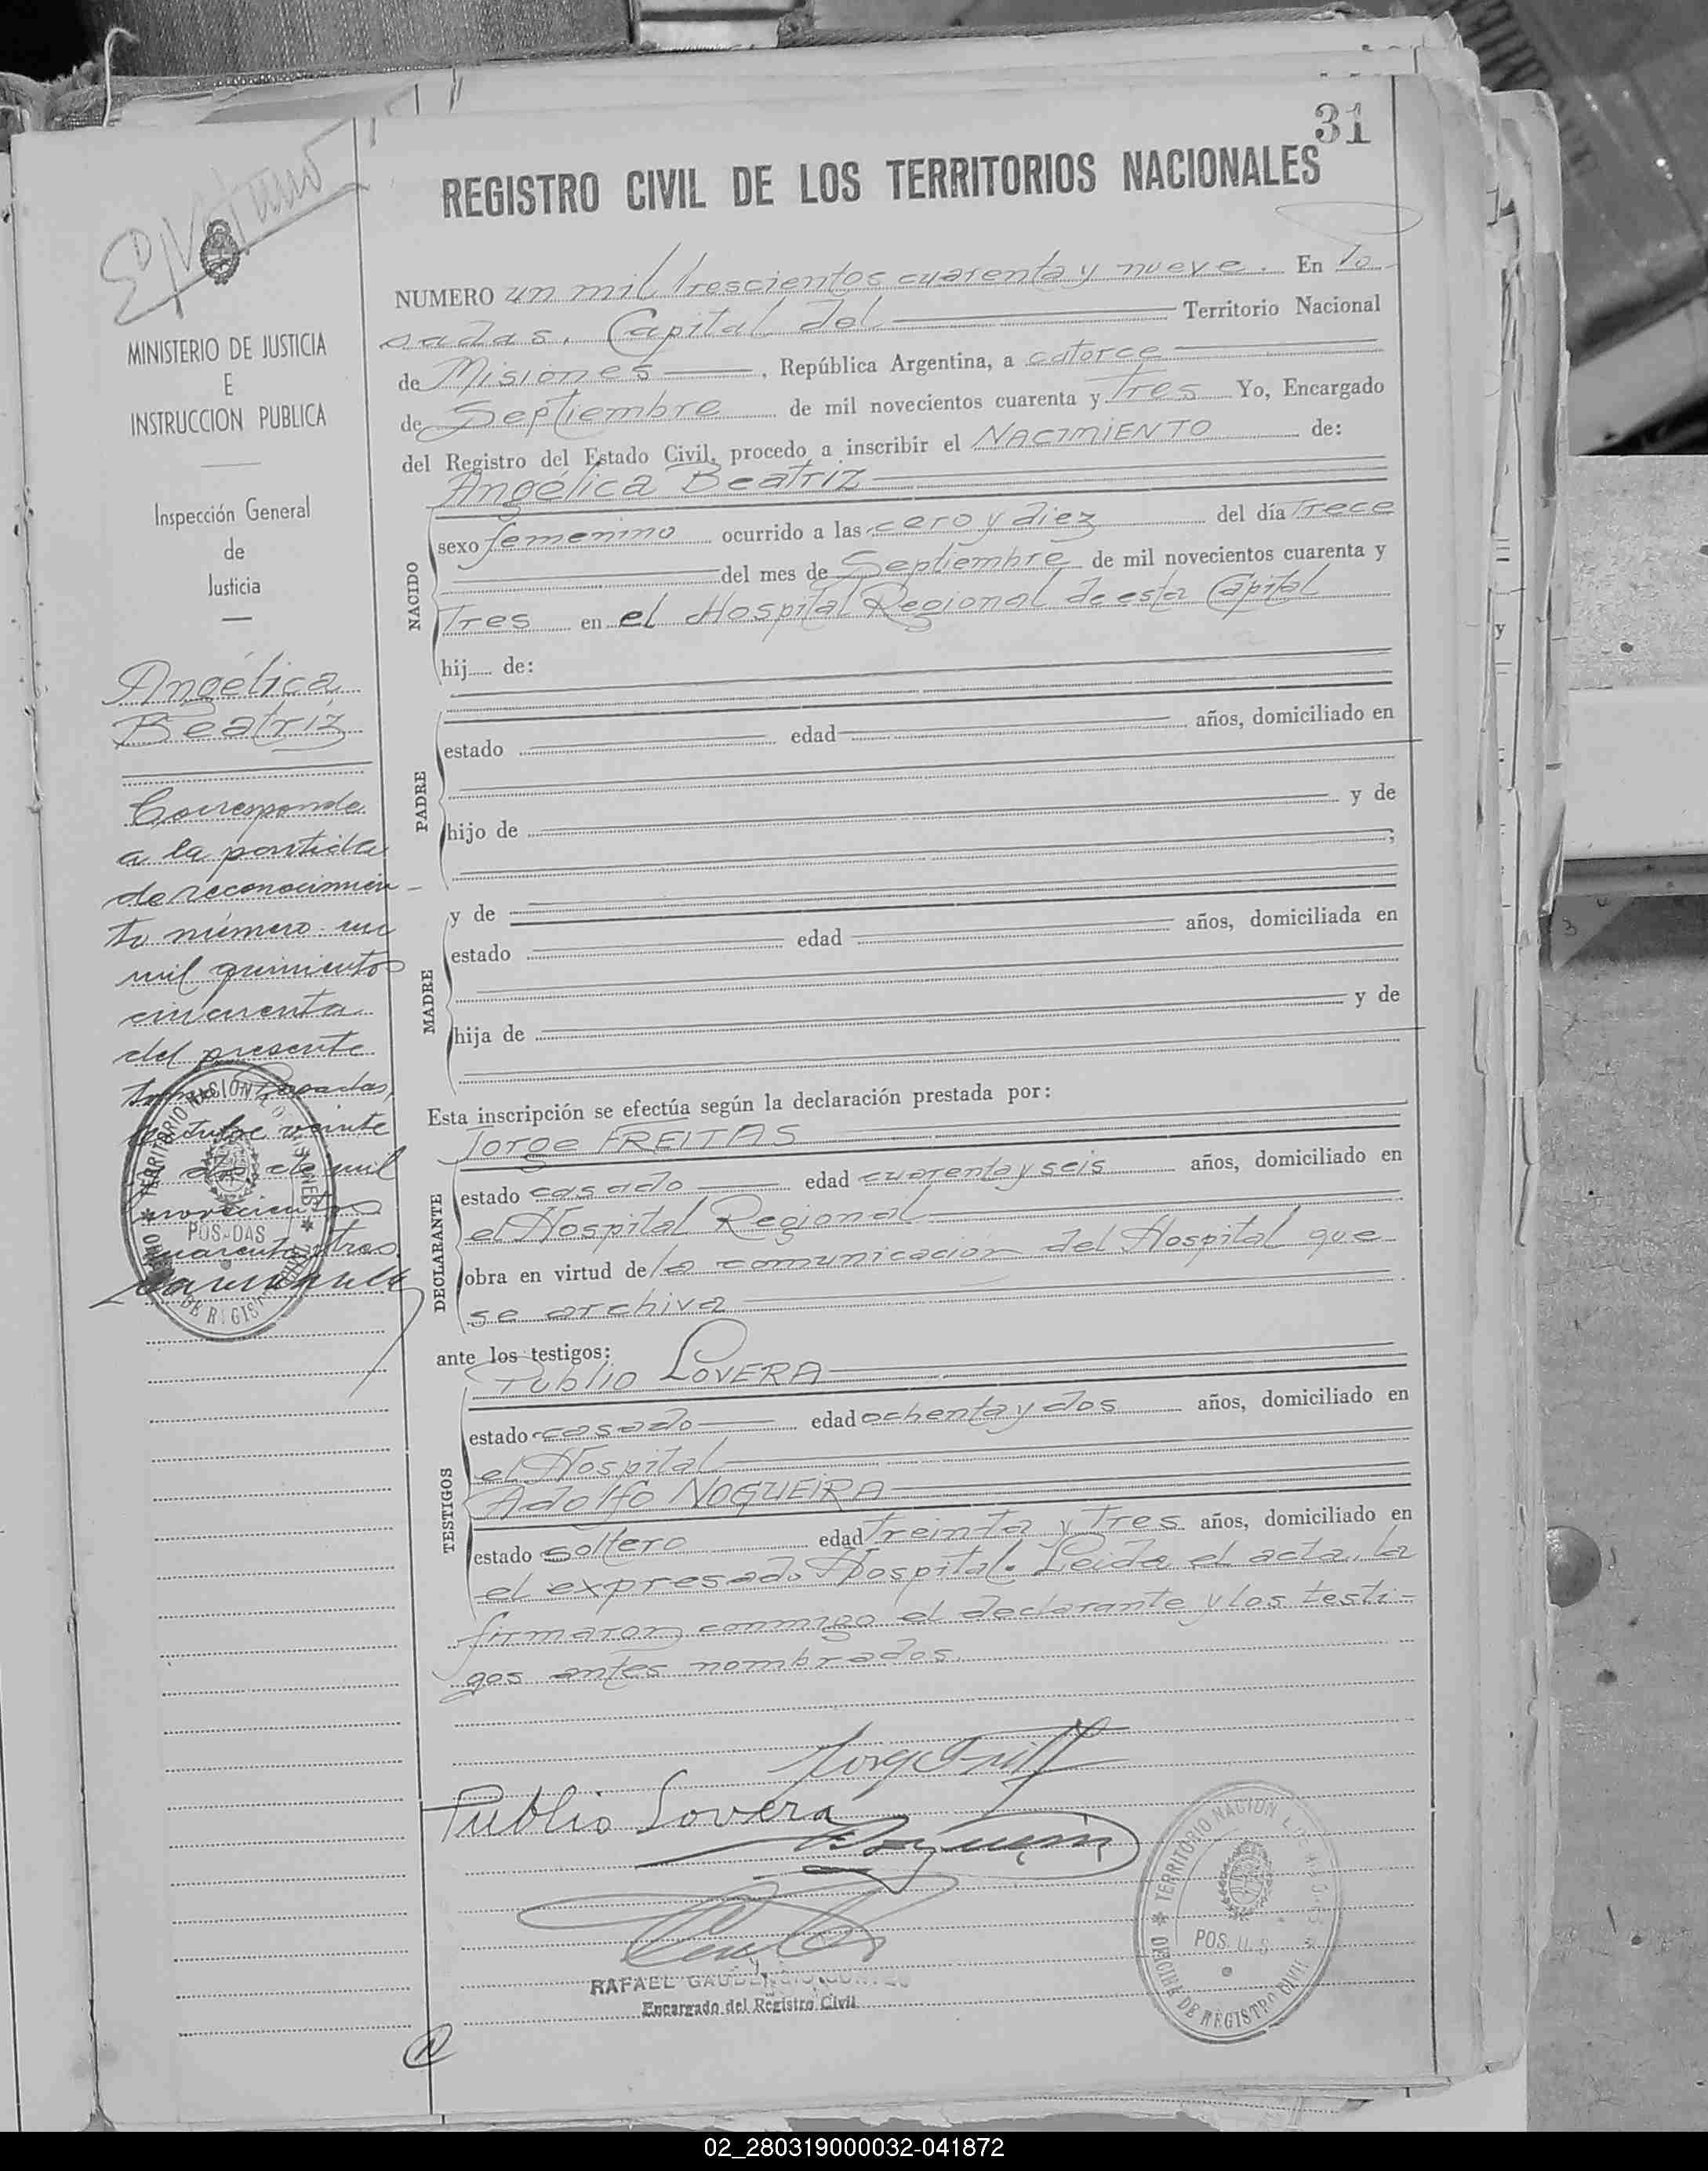 31
REGISTRO CIVIL DE LOS TERRITORIOS NACIONALES
NUMERO un mil trescientos cuarenta y nueve. En Po-
sadas, Capital del Territorio Nacional
de Misiones, República Argentina, a catorce
de Septiembre de mil novecientos cuarenta y Tres Yo, Encargado
del Registro del Estado Civil, procedo a inscribir el NACIMIENTO de:
Angélica Beatriz
NACIDO
sexo femenino ocurrido a las cero y diez del día Trece
del mes de Septiembre de mil novecientos cuarenta y
Tres en el Hospital Regional de esta Capital
hij de:
PADRE
estado edad años, domiciliado en
hijo de y de
;
MADRE
y de
estado edad años, domiciliada en
hija de y de
Esta inscripción se efectúa según la declaración prestada por:
Jorge FREITAS
DECLARANTE
estado casado edad cuarenta y seis años, domiciliado en
el Hospital Regional
obra en virtud de la comunicacion del Hospital que
se archiva
ante los testigos:
TESTIGOS
Publio LOVERA
estado casado edad ochenta y dos años, domiciliado en
el Hospital
Adolfo NOGUEIRA
estado soltero edad treinta y Tres años, domiciliado en
el expresado Hospital. Leida el acta, la
firmaron conmigo el declarante y los testi-
gos antes nombrados.
Publio Lovera
RAFAEL GAUDENCIO CORTES
Encargado del Registro Civil
TERRITORIO NACIONAL DE MISIONES
POSADAS
OFICINA DE REGISTRO CIVIL
MINISTERIO DE JUSTICIA
E
INSTRUCCION PUBLICA
Inspección General
de
Justicia
Angélica
Beatriz
Corresponde
a la partida
de reconocimien-
to número un
mil quinientos
cincuenta
del presente
tomo Posadas,
Octubre veinte
de mil
novecientos
cuarenta y tres
TERRITORIO NACIONAL DE MISIONES
POSADAS
DE REGISTRO
02_280319000032-041872